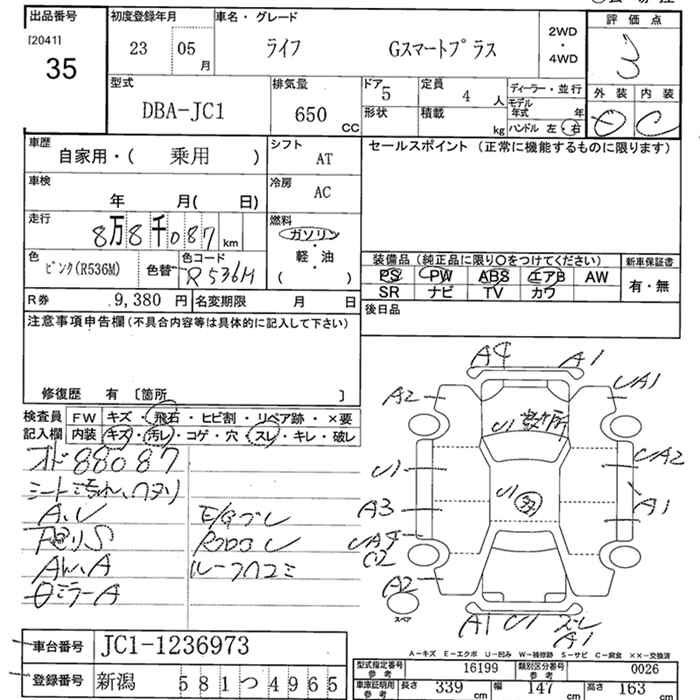 出品番号 初度登録年月 車名・グレード 評価点
[2041] 35 23 05月 ライフ Gスマートプラス 2WD・4WD 3
型式 排気量 ドア 定員 ディーラー・並行 外装 内装
DBA-JC1 650cc 5 4人 モデル年式 年 C
形状 積載 kg ハンドル 左・右
車歴 シフト セールスポイント（正常に機能するものに限ります）
自家用・(乗用) AT
車検 年 月( 日) 冷房 AC
走行 8万8千087km 燃料 ガソリン 軽・油 ( )
色 ピンク(R536M) 色替 色コード R536M
装備品（純正品に限り○をつけてください） 新車保証書
PS PW ABS エアB AW 有・無
SR ナビ TV カワ
R券 9,380円 名変期限 月 日 後日品
注意事項申告欄（不具合内容等は具体的に記入して下さい）
修復歴 有 [箇所 ]
検査員記入欄 FW キズ・飛石・ヒビ割・リペア跡・×要
内装 キズ・汚レ・コゲ・穴・スレ・キレ・破レ
オド88087
シート汚れ、ヘタリ
A.U E/Gブレ
AW.A ルーフヘコミ
ミラーA
A4 A1
A2 UA1
U1 UA2
A3 U1 A1
A2
A1 U1 スレ A1
スペア
車台番号 JC1-1236973
登録番号 新潟 581つ4965
A－キズ E－エクボ U－凹み W－補修跡 S－サビ C－腐食 ××－交換済
型式指定番号 参考 16199 類別区分番号 参考 0026
車庫証明用 参考 長さ 339cm 幅 147cm 高さ 163cm